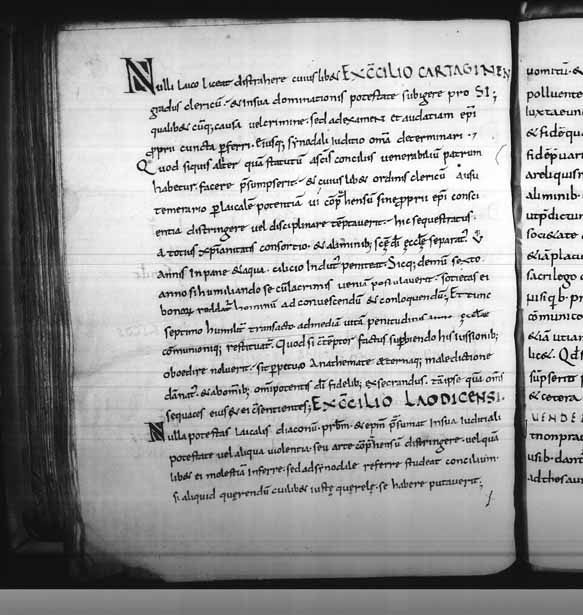 Nulli laico liceat distrahere cuiuslibet EX CC̄ILIO CARTAGINEN
gradus clericū · & insua dominationis potestate subigere pro SI;
qualib& cūq; causa vel crimine · sed ad examen & audiatam ep̄i
p̱prii cuncta p̱ferri · eiusq; synodali iuditio om̄a determinari ·,
Quod siquis alit̄er quā statutū ascīs conciliis venerabiliū patrum
hab&ur facere p̄sumpserit · & cuiuslib& ordinis clericū ausu
temerario p̱ laicalē potentiā vi cōp̄hensū sine p̱prii ep̄i consci
entia distringere vel disciplinare tēptaverit · hic sequestratus
a totus xp̄ianitatis consortio · & aliminib; sc̄ę dī ęcclę separat᷑
annis in pane & aqua · cilicio indut᷑ peniteat · Sicq; demū sexto
anno si humiliando se cū lacrimis veniā postulaverit · soci&as ei
bonorū reddat᷑ hominū ad convescendū & conloquendū; Et tunc
septimo humilit̄ transacto ad mediā vitā penitudinis
cōmunioniq; restituat᷑ · Quod si cōtēptor factus superbiendo his iussionib;
oboedire noluerit · sit perp&uo anathemate · & ęternaq; maledictione
dānat᷑ · & abomīb; om̄ipotentis dī fidelib; exsecrandus · tā ipse quā om̄s
sequaces eius & ei cōsentientes; EX CC̄ILIO LAODICENSI.
Nulla potestas laicalis diaconū · prb̄m · & ep̄m p̄sumat insua iuditiali
potestate vel aliqua violentia · seu arte cōp̄hensū distringere · vel quā
lib& ei molestiā inferre · sed ad synodale referre studeat concilium ·
si aliquid querendū cuilib& iustę querelę · se habere putaverit;
vomitū · &
polluente
iuxta eun
& fideq
fidę
areliquis
aliminib ·
utp̄dictu
soci&ate
& ia placu
sacrilego
cōmunico
& iā utiā
lice& · Qd̄
sup̄seri
& cetera
VENDE
tnonpra
usib · dan
adthesau